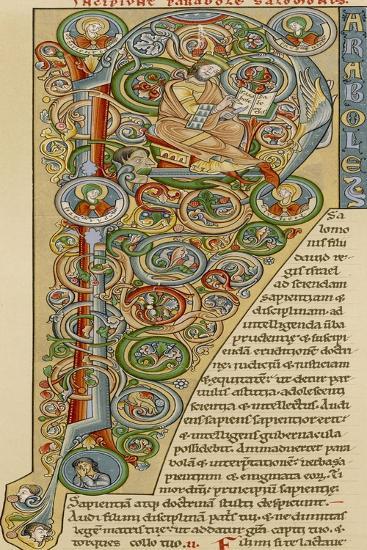 Incipiunt parabole salomonis.
PARABOLES
Salomo
nis filii
dauid re
gis israel
ad sciendam
sapientiam &
disciplinam. ad
intelligenda uba
prudentie & suscipi
endā eruditionē doctri
ne. iudiciū & iusticiam
& equitatē ut detur par
uulis astutia. adolescenti
scientia & intellectus. Audi
ens sapiens sapientior erit.
& intelligens gubernacula
possidebit. Animaduertet para
bolā & interpretationē. uerba sa
pientium & enigmata eorū. Ti
mor dn̄i principiū sapientię.
Sapientiam atq; doctrinā stulti despiciunt.
Audi fili mi disciplinā patris tui. & ne dimittas
legē matris tuę. ut addatur grā capiti tuo. &
torques collo tuo.
Fili mi si te lactaue